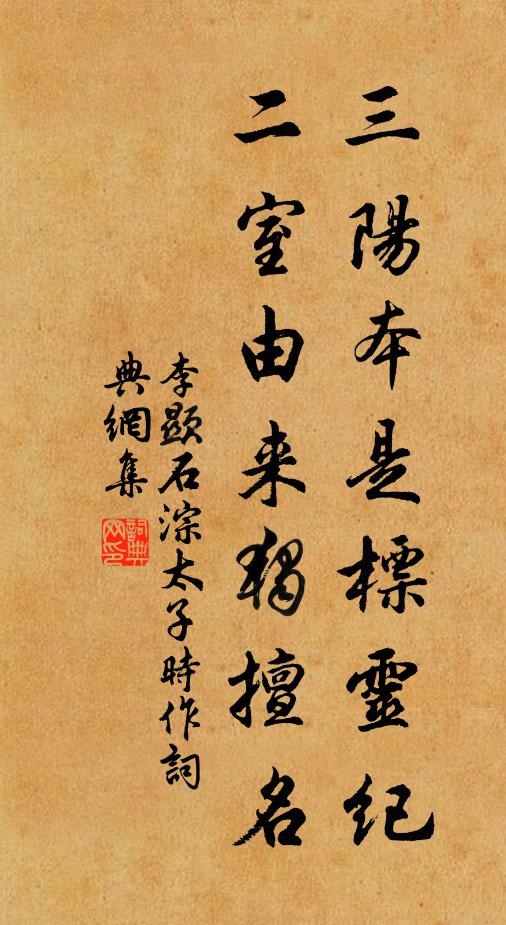 三陽本是標靈紀
二室由来獨擅名
李顯石淙太子時作詞
典網集
詞典網印